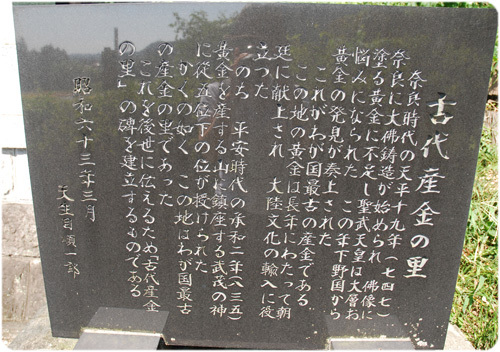 古代産金の里
奈良時代の天平十九年（七四七）
奈良に大佛鋳造が始められ 佛像に
塗る黄金に不足し聖武天皇は大層お
悩みになられた この年下野国から
黄金の発見が奏上された
これがわが国最古の産金である
この地の黄金は長年にわたって朝
廷に献上され 大陸文化の輸入に役
立つた
のち 平安時代の承和二年（八三五）
黄金を産する山に鎮座する武茂の神
に従五位下の位が授けられた
かくの如く この地はわが国最古
の産金の里であった
これを後世に伝えるため「古代産金
の里」の碑を建立するものである
昭和六十三年三月